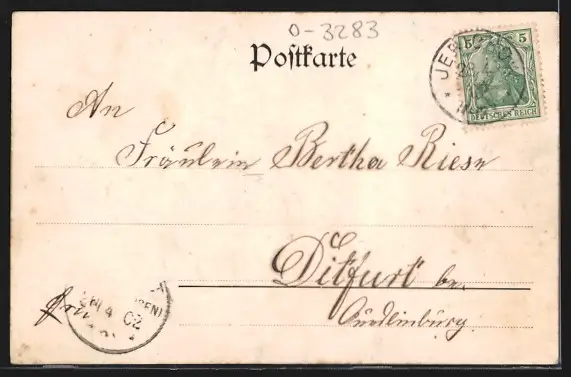 0-3283
Postkarte
5 5
DEUTSCHES REICH
An
Fräulein Bertha Riese
Ditfurt be.
Quedlinburg.
02